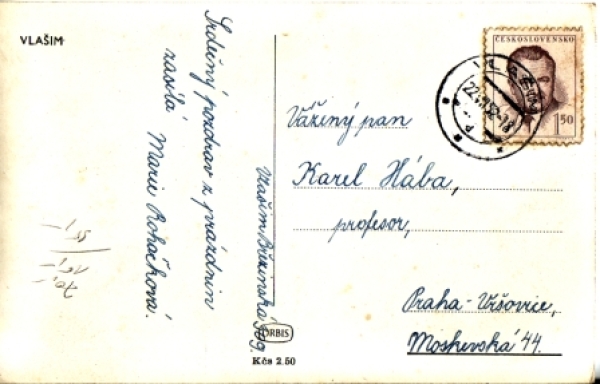 VLAŠIM
Srdečný pozdrav z prázdnin
zasílá Marie Roháčková.
Vlašim Březinská
ORBIS
Kčs 2.50
ČESKOSLOVENSKO
1.50
Vážený pan
Karel Hába,
profesor,
Praha-Vršovice,
Moskevská 44.